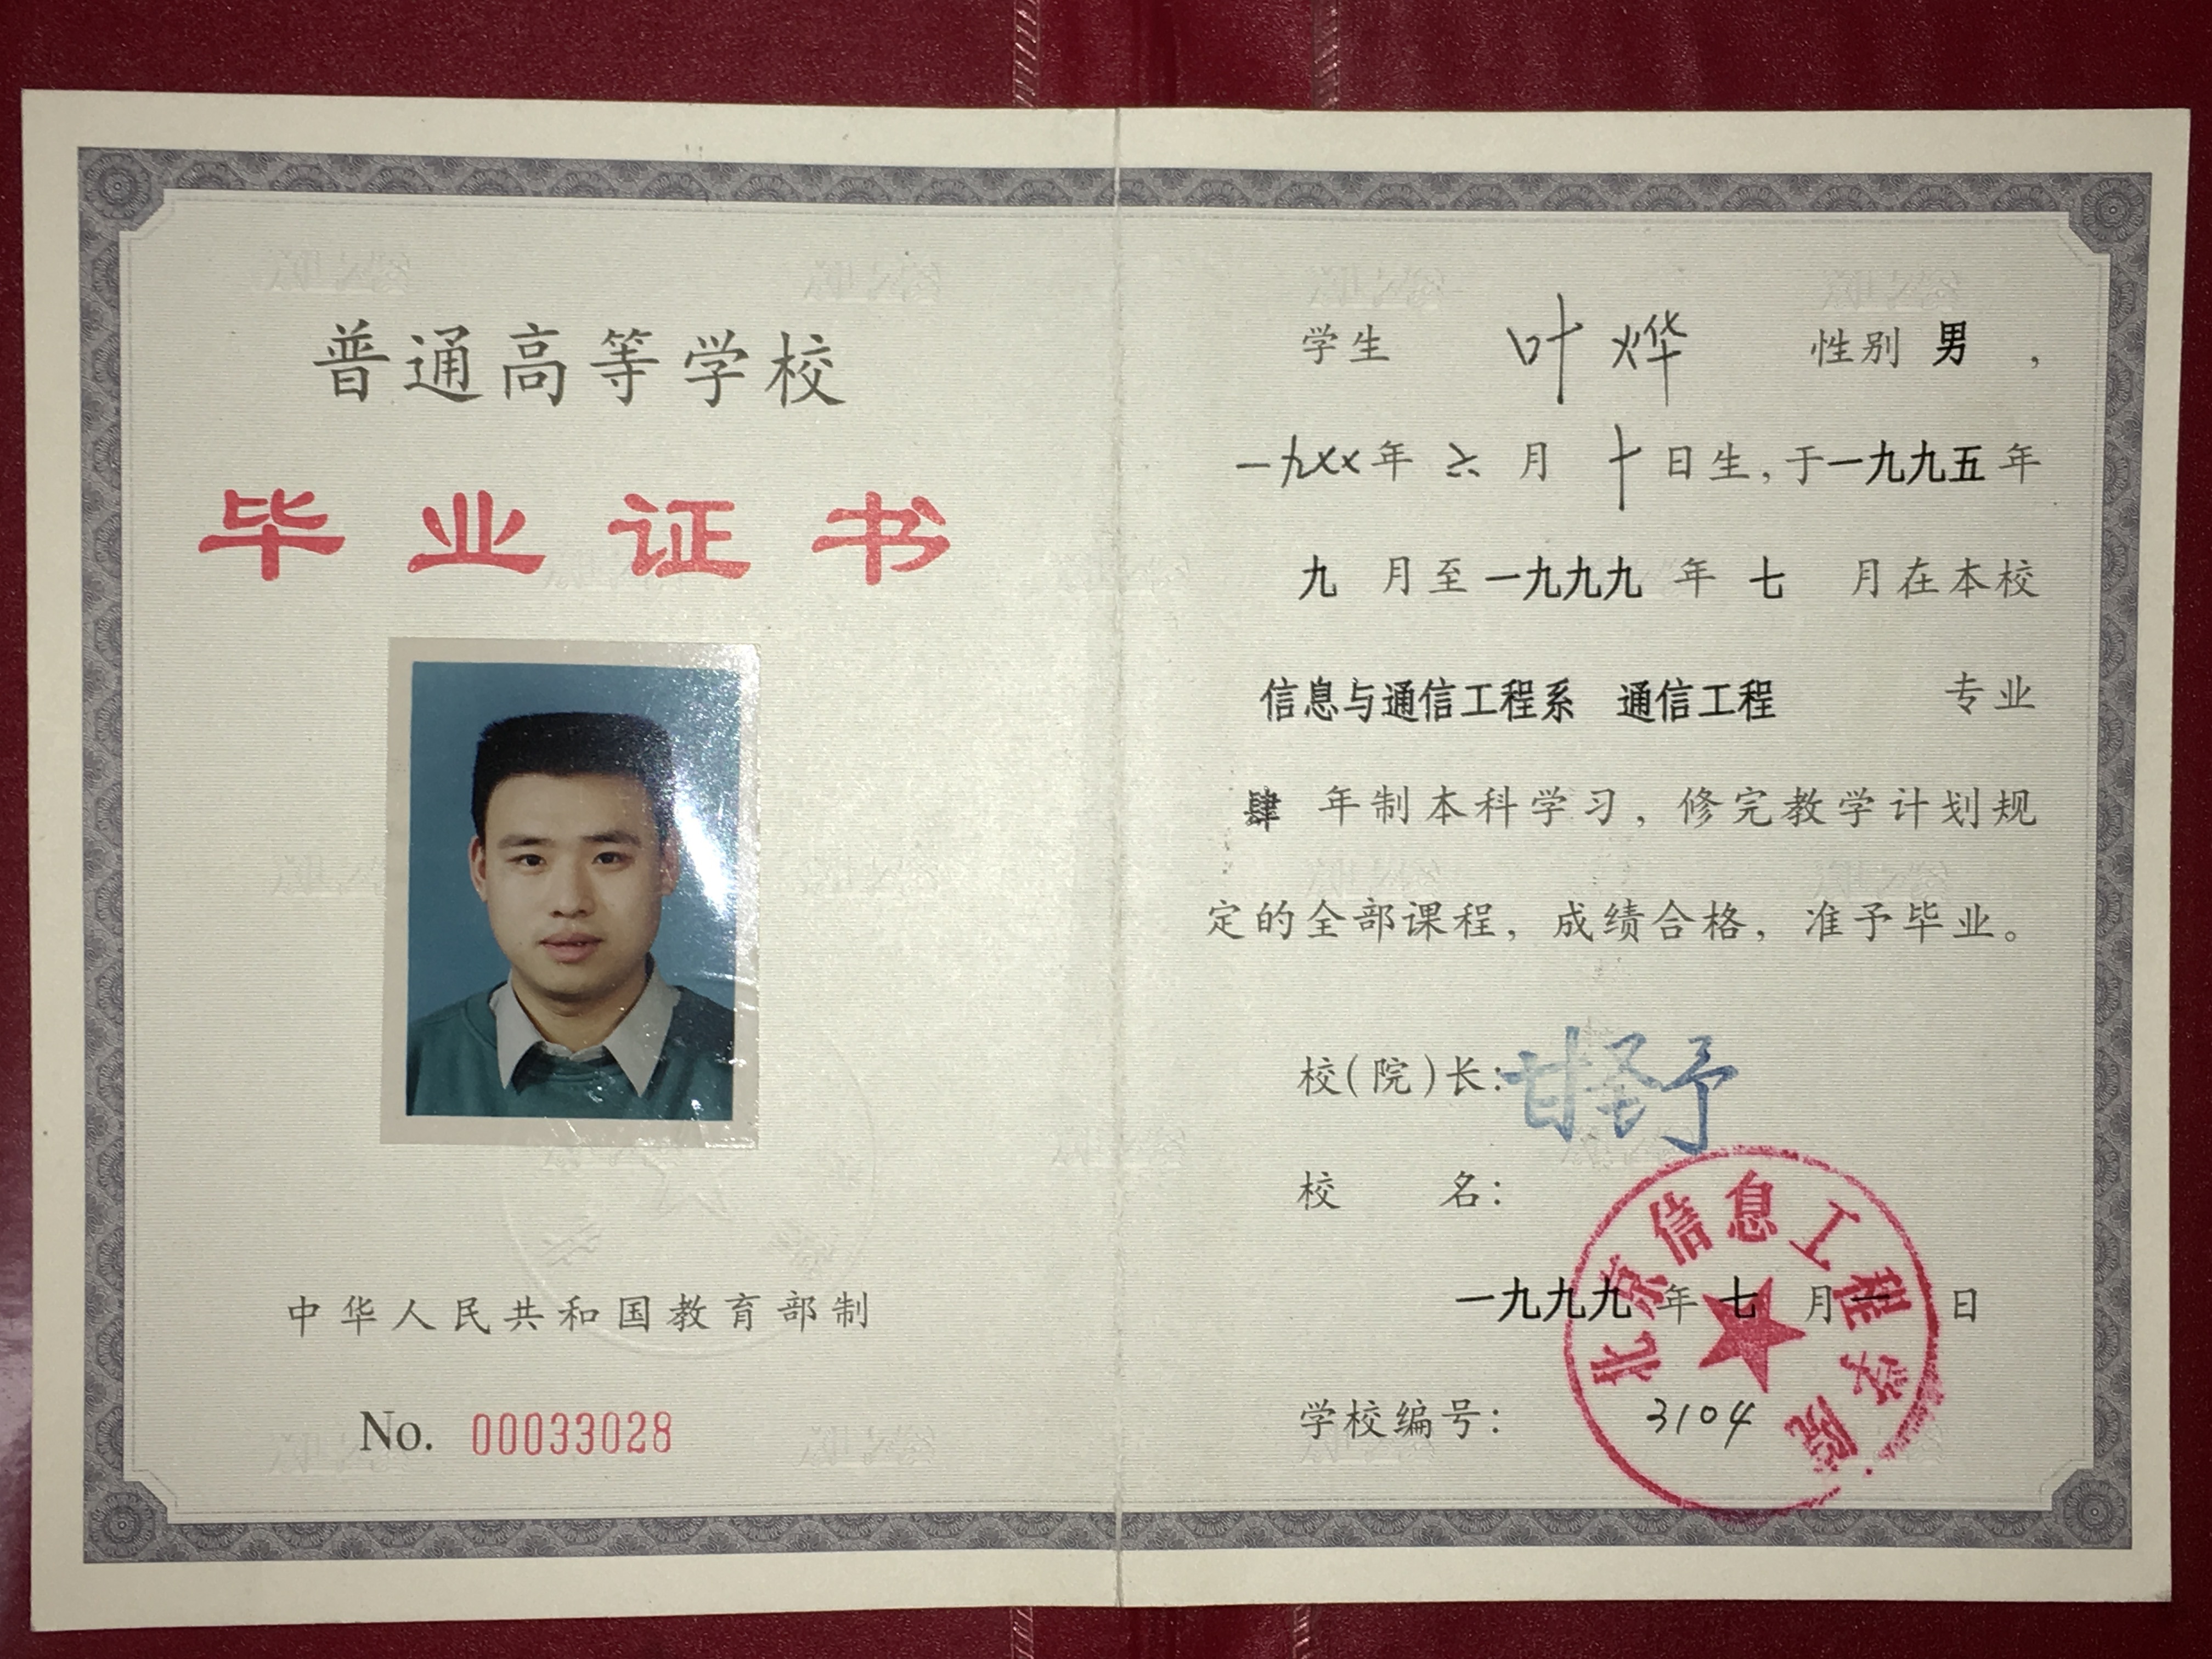 普通高等学校
毕业证书
中华人民共和国教育部制
No. 00033028
学生 叶烨 性别 男 ，
一九xx年 六 月 十 日生，于一九九五年
九 月至一九九九 年 七 月在本校
信息与通信工程系 通信工程 专业
肆 年制本科学习，修完教学计划规
定的全部课程，成绩合格，准予毕业。
校（院）长：甘圣予
校 名：
北京信息工程学院
一九九九 年 七 月 一 日
学校编号： 3104